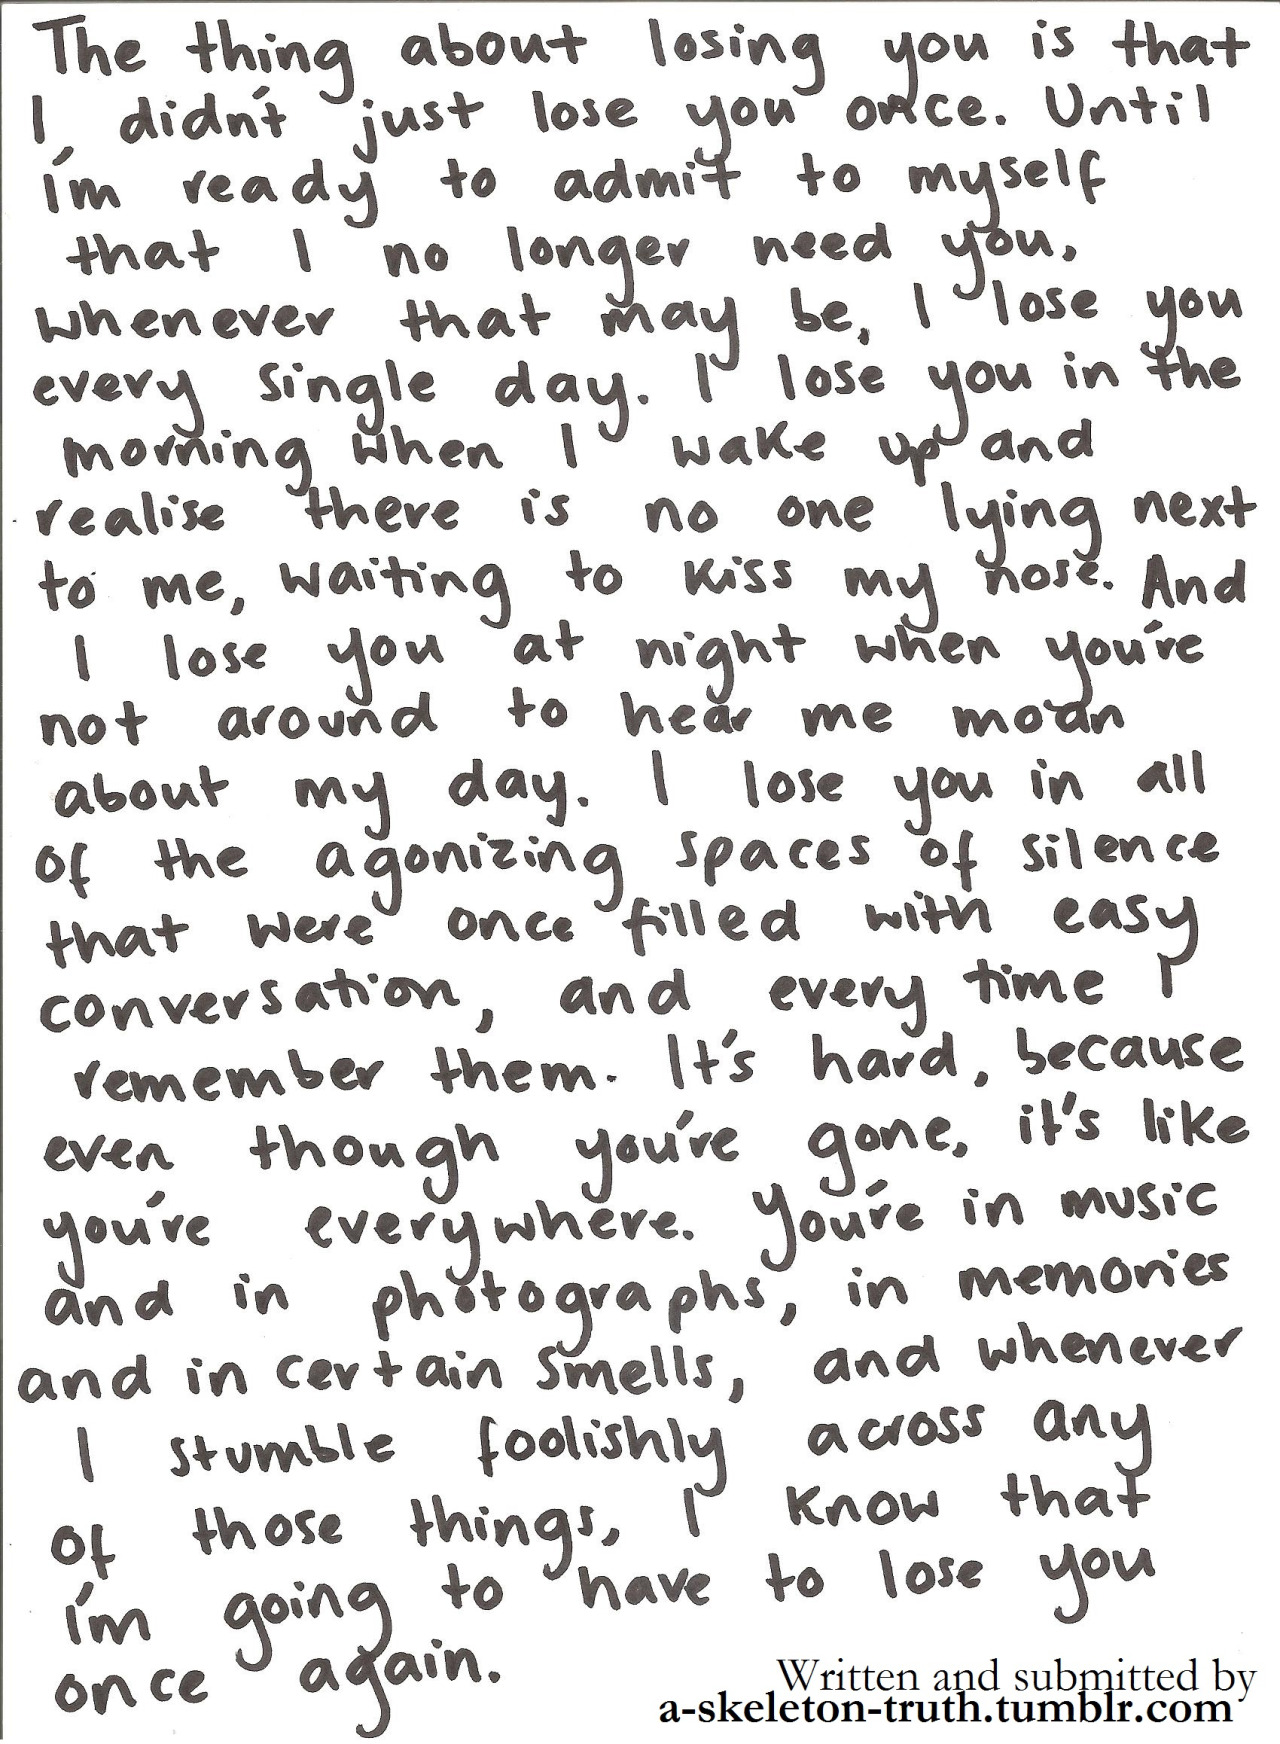 The thing about losing you is that
I didn't just lose you once. Until
i'm ready to admit to myself
that I no longer need you,
whenever that may be, I lose you
every single day. I lose you in the
morning when I wake up and
realise there is no one lying next
to me, waiting to kiss my nose. And
I lose you at night when you're
not around to hear me moan
about my day. I lose you in all
of the agonizing spaces of silence
that were once filled with easy
conversation, and every time I
remember them. It's hard, because
even though you're gone, it's like
you're everywhere. You're in music
and in photographs, in memories
and in certain smells, and whenever
I stumble foolishly across any
of those things, I know that
i'm going to have to lose you
once again.
Written and submitted by
a-skeleton-truth.tumblr.com